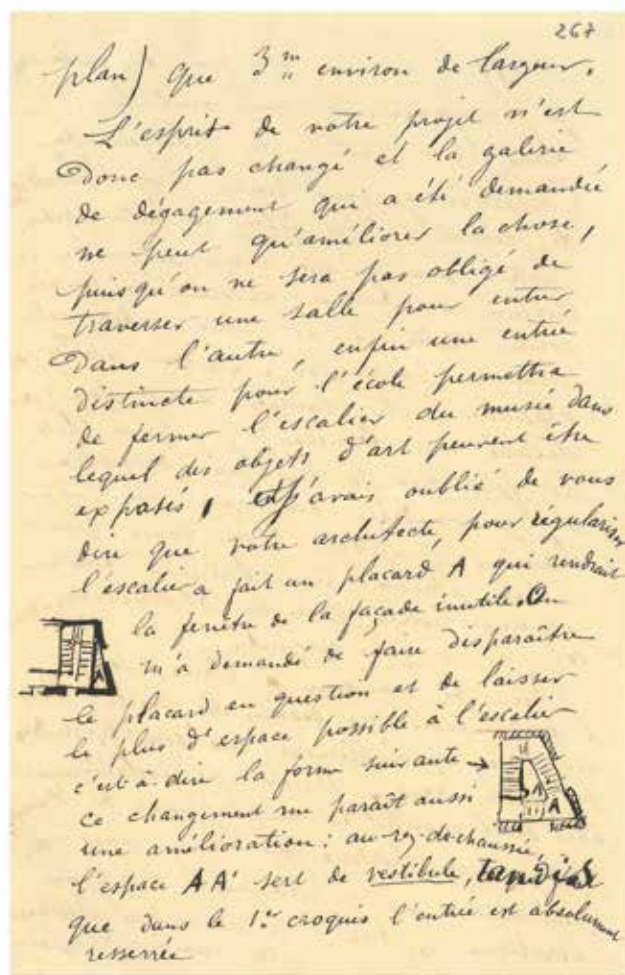 267
plan) que 3m environ de largeur.
L'esprit de votre projet n'est
donc pas changé et la galerie
de dégagement qui a été demandée
ne peut qu'améliorer la chose,
puisqu'on ne sera pas obligé de
traverser une salle pour entrer
dans l'autre, enfin une entrée
distincte pour l'école permettra
de fermer l'escalier du musée dans
lequel des objets d'art peuvent être
exposés, J'avais oublié de vous
dire que votre architecte, pour régulariser
l'escalier a fait un placard A qui rendrait
la fenêtre de la façade inutile. On
m'a demandé de faire disparaître
A
le placard en question et de laisser
le plus d'espace possible à l'escalier
c'est-à-dire la forme suivante →
ce changement me paraît aussi
A A
une amélioration : au rez-de-chaussée,
l'espace AA' sert de vestibule, tandis
que dans le 1er croquis l'entrée est absolument
resserrée